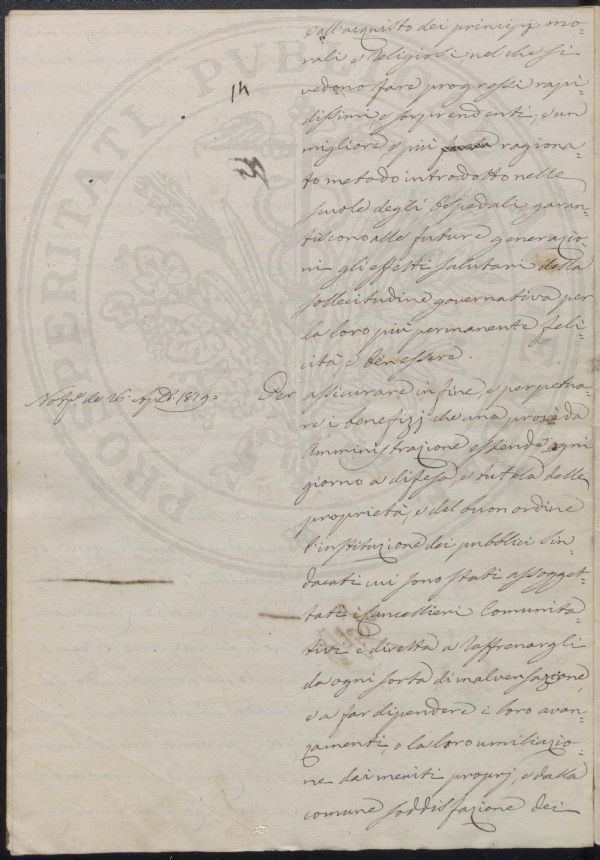 e all'acquisto dei principj mo-
rali e Religiosi nel che si
vedono fare progressi rapi-
dissimi e sorprendenti, e un
migliore, e più ragiona-
to metodo introdotto nelle
scuole degli Ospedali, garan-
tiscono alle future generazio-
ni gli effetti salutari della
sollecitudine governativa per
la loro più permanente feli-
cità e benessere.
Per assicurare in fine e perpetua-
re i benefizj che una provida
Amministrazione estende ogni
giorno a difesa, e tutela delle
proprietà, e del buon ordine
l'instituzione dei pubblici Sin-
dacati cui sono stati assogget-
tati i Cancellieri Comunita-
tivi è diretta a raffrenargli
da ogni sorta di malversazione,
e a far dipendere i loro avan-
zamenti, o la loro umiliazio-
ne dai meriti proprj, e dalla
comune soddisfazione dei
de 26
14
PROSPERITATI PUBLICAE